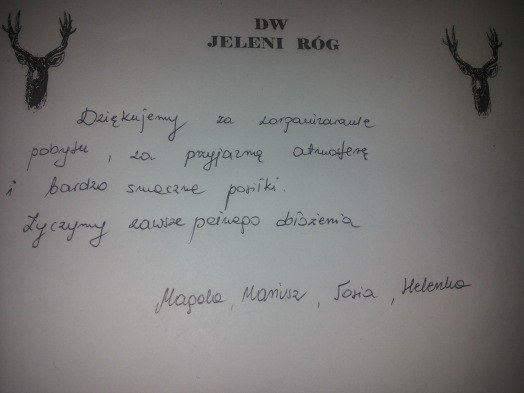 DW
JELENI RÓG
Dziękujemy za zorganizowanie
pobytu, za przyjazną atmosferę
i bardzo smaczne posiłki.
Życzymy zawsze pełnego obłożenia
Magda, Mariusz, Tosia, Helenka